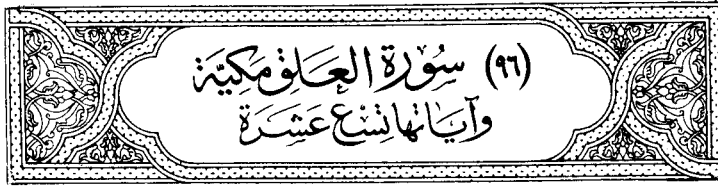 (٩٦) سُورَة العَلق مَكيَّة
وآيَاتها تِسْع عَشَرَة